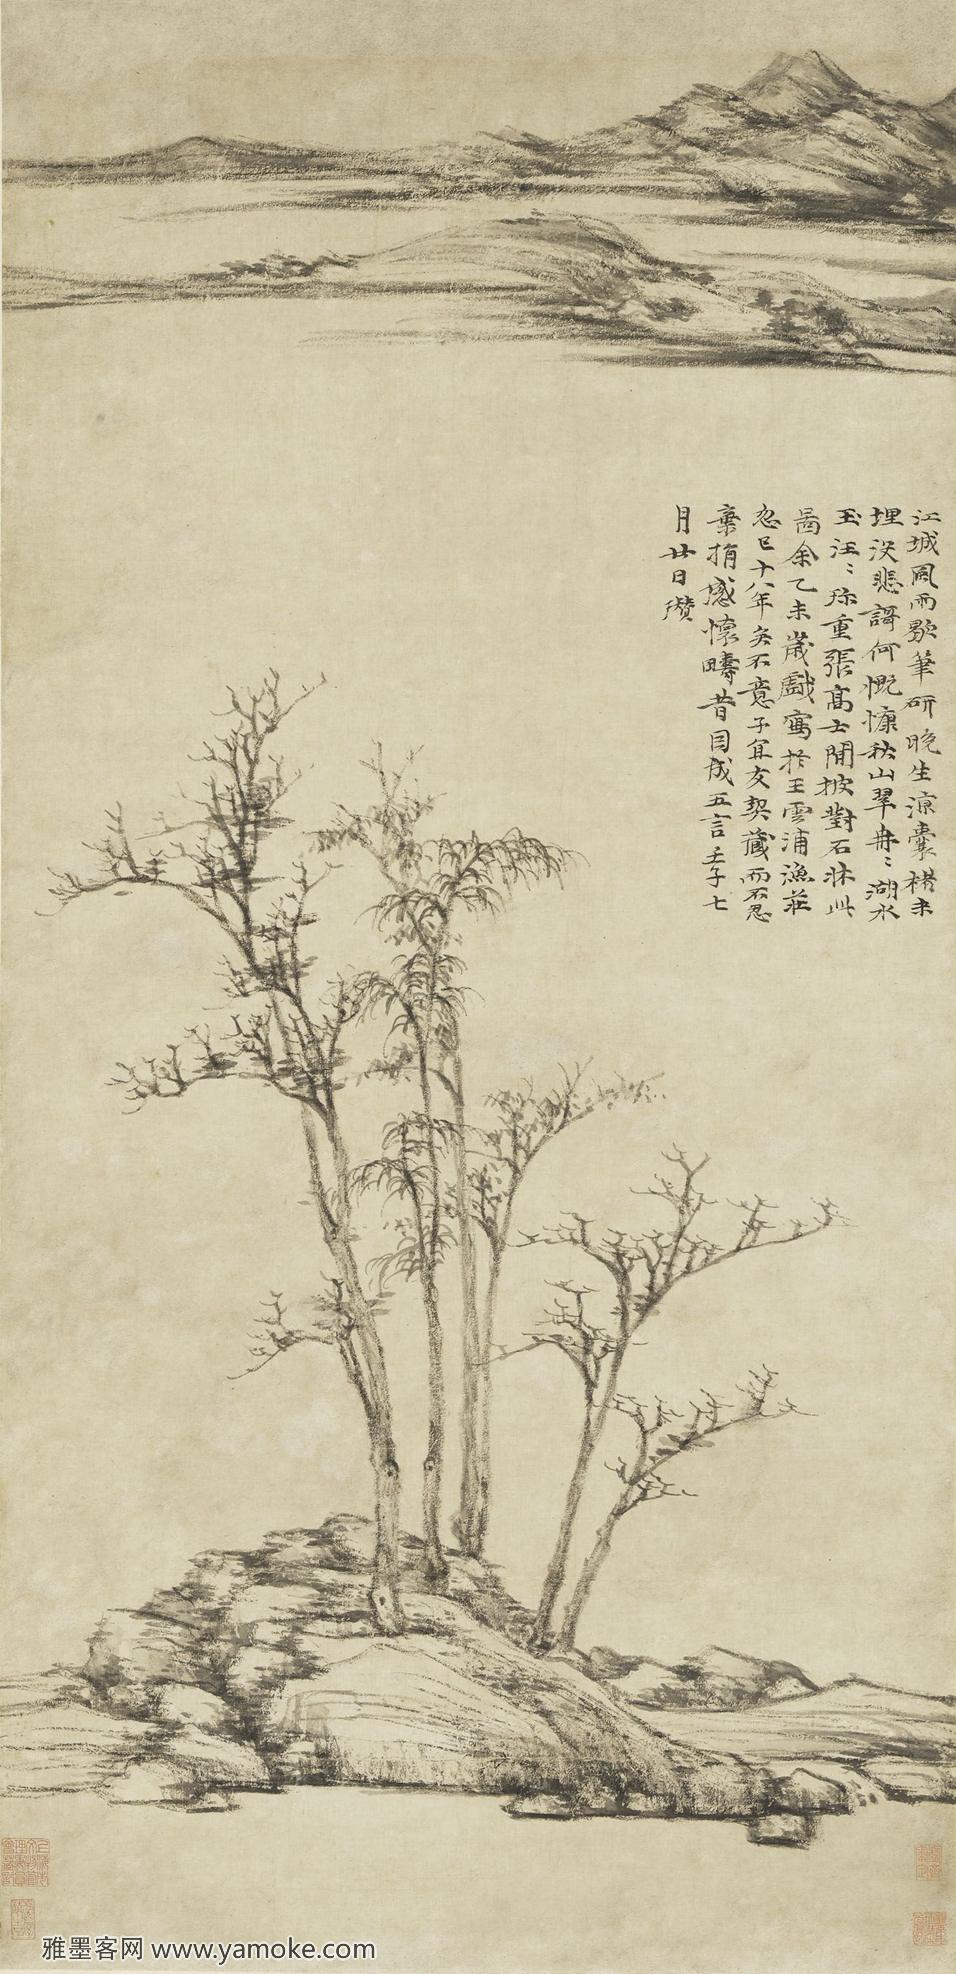 江城風雨歇筆研晚生涼囊楮未
埋没悲謌何慨慷秋山翠冉〻湖水
玉汪〻珎重張高士閒披對石牀此
啚余乙未歲戯寫於王雲浦漁莊
忽已十八年矣不意子宜友契藏而不忍
棄捐感懷疇昔因成五言壬子七
月廿日瓚
雅墨客网 www.yamoke.com